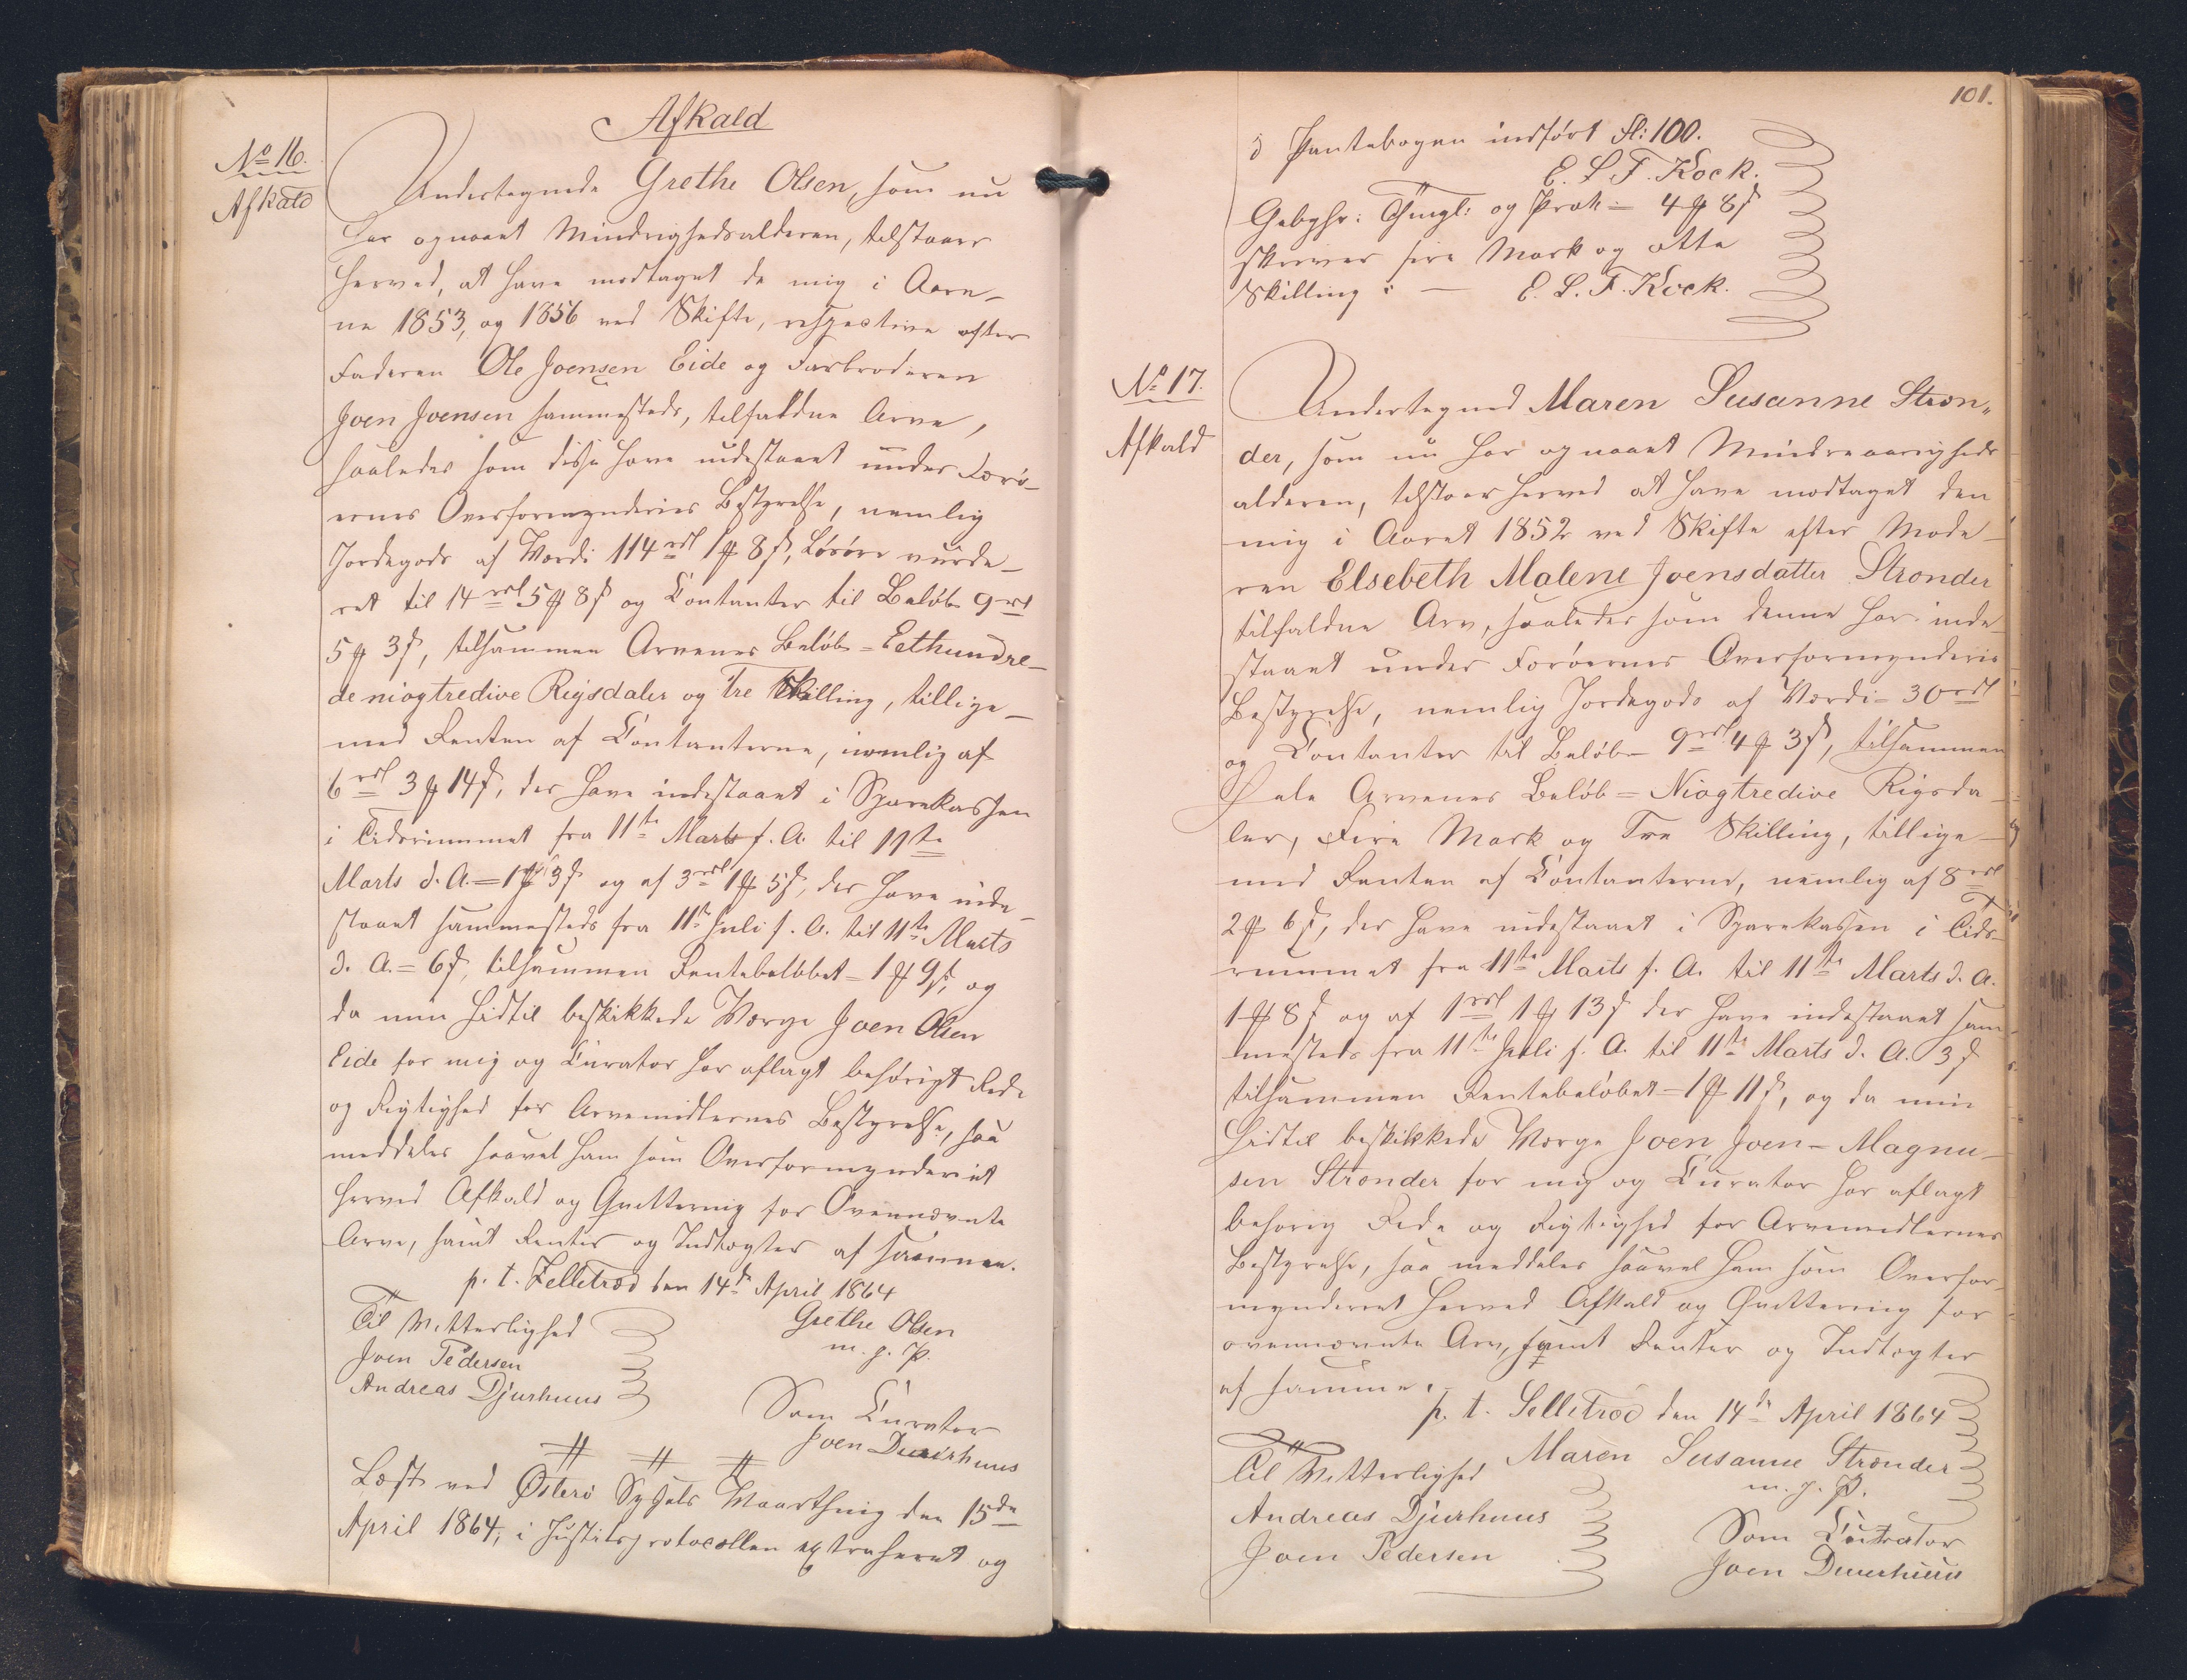 Afkald
No 16.
Afkald
Undertegnede Grethe Olsen, som nu
har opnaaet Mindrighedsalderen, tilstaaer
herved, at have modtaget de mig i Aare-
ne 1853, og 1856 ved Skifte, respective efter
Faderen Ole Joensen Eide og Farbroderen
Joen Joensen sammesteds, tilfaldne Arve,
saaledes som disse have indestaaet under Færø-
ernes Overformynderies Bestyrelse, nemlig
Jordegods af Værdi 114 rdl 1 ₻ 8 ß, Løsøre vurde-
ret til 14 rdl 5 ₻ 8 ß og Contanter til Beløb 9 rd
5 ₻ 3 ß, tilsammen Arvenes Beløb = Eethundre-
de niogtredive Rigsdaler og Tre Skilling, tillige-
med Renten af Contanterne, nemlig af
6 rdl 3 ₻ 14 ß, der have indestaaet i Sparekassen
i Tidsrummet fra 11te Marts f. A. til 11te
Marts d. A. = 1 ₻ 3 ß og af 3 rdl 1 ₻ 5 ß, der have inde-
staaet sammesteds fra 11te Juli f. A. til 11te Marts
d. A. = 6 ß, tilsammen Rentebeløbet = 1 ₻ 9 ß, og
da min hidtil beskikkede Værge Joen Olsen
Eide for mig og Curator har aflagt behørigt Rede
og Rigtighed for Arvemidlernes Bestyrelse, saa
meddeles saavel ham som Overformynderiet
herved Afkald og Qvittering for Ovennævnte
Arve, samt Renter og Indtægter af samme.
p. t. Selletræd den 14de April 1864
Til Vitterlighed
Grethe Olsen
m. f. P.
Joen Pedersen
Andreas Djurhuus
Som Curator
Joen Duurhuus
Læst ved Østerø Syssels Vaarthing den 15de
April 1864, i Justitsprotocollen extraheret og
101.
i Pantebogen indført Fl: 100.
E. L. F. Kock.
Gebyhr: Thingl: og Prot = 4 ₻ 8 ß
skriver fire Mark og otte
Skilling : — E. L. F. Kock.
No 17.
Afkald
Undertegned Maren Susanne Stron„
der, som nu har opnaaet Mindreaarigheds
alderen, tilstaaer herved at have modtaget den
mig i Aaret 1852 ved Skifte efter Mode-
ren Elsebeth Malene Joensdatter Stronder
tilfaldne Arv, saaledes som denne har inde-
staaet under Færøernes Overformynderis
Bestyrelse, nemlig Jordegods af Værdi = 30 rdl
og Contanter til Beløb = 9 rdl 4 ₻ 3 ß, tilsammen
Hele Arvenes Beløb = Niogtredive Rigsda-
ler, Fire Mark og Tre Skilling, tillige-
med Renten af Contanterne, nemlig af 8 rdl
2 ₻ 6 ß, der have indestaaet i Sparekassen i Tids-
rummet fra 11te Marts f. A. til 11te Marts d. A.
1 ₻ 8 ß og af 1 rdl 1 ₻ 13 ß der have indestaaet sam-
mesteds fra 11te Juli f. A. til 11te Marts d. A. 3 ß
tilsammen Rentebeløbet = 1 ₻ 11 ß, og da min
hidtil beskikkede Værge Joen Joen- Magnu-
sen Stronder for mig og Curator har aflagt
behørig Rede og Rigtighed for Arvemidlernes
Bestyrelse, saa meddeles saavel ham som Overfor-
mynderiet herved Afkald og Qvittering for
ovennævnte Arv, samt Renter og Indtægter
af samme.
p. t. Selletræd den 14de April 1864
Til Vitterlighed
Maren Susanne Stronder
m. f. P.
Andreas Djurhuus
Joen Pedersen
Som Curator
Joen Duurhuus